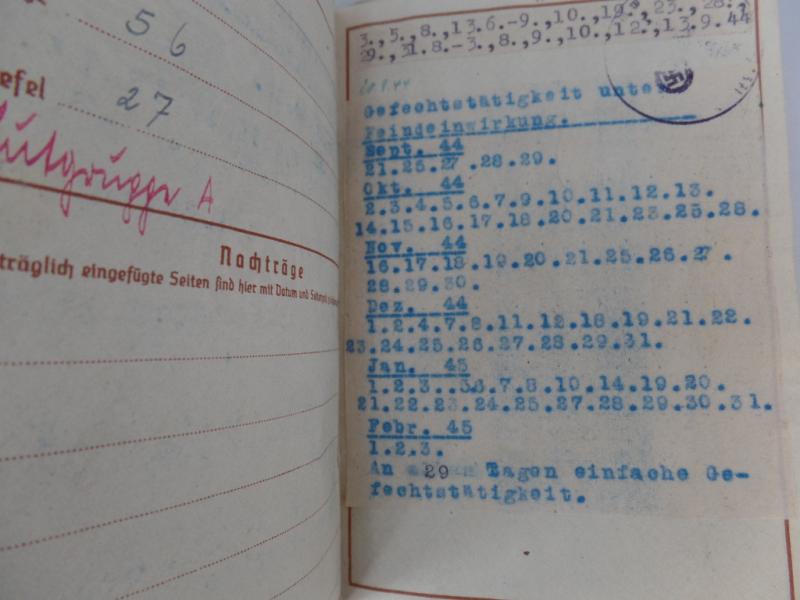 56
efel 27
Blutgruppe A
Nachträge
träglich eingefügte Seiten sind hier mit Datum und
3.,5.,8.,13.6.-9.,10.,19.,23.,28.,
29.,31.8.-3.,8.,9.,10.,12.,13.9.44
Gefechtstätigkeit unter
Feindeinwirkung.
Sept. 44
21.25.27.28.29.
Okt. 44
2.3.4.5.6.7.9.10.11.12.13.
14.15.16.17.18.20.21.23.25.28.
Nov. 44
16.17.18.19.20.21.25.26.27.
28.29.30.
Dez. 44
1.2.4.7.8.11.12.18.19.21.22.
23.24.25.26.27.28.29.31.
Jan. 45
1.2.3..5.6.7.8.10.14.19.20.
21.22.23.24.25.27.28.29.30.31.
Febr. 45
1.2.3.
An 29 Tagen einfache Ge-
fechtstätigkeit.